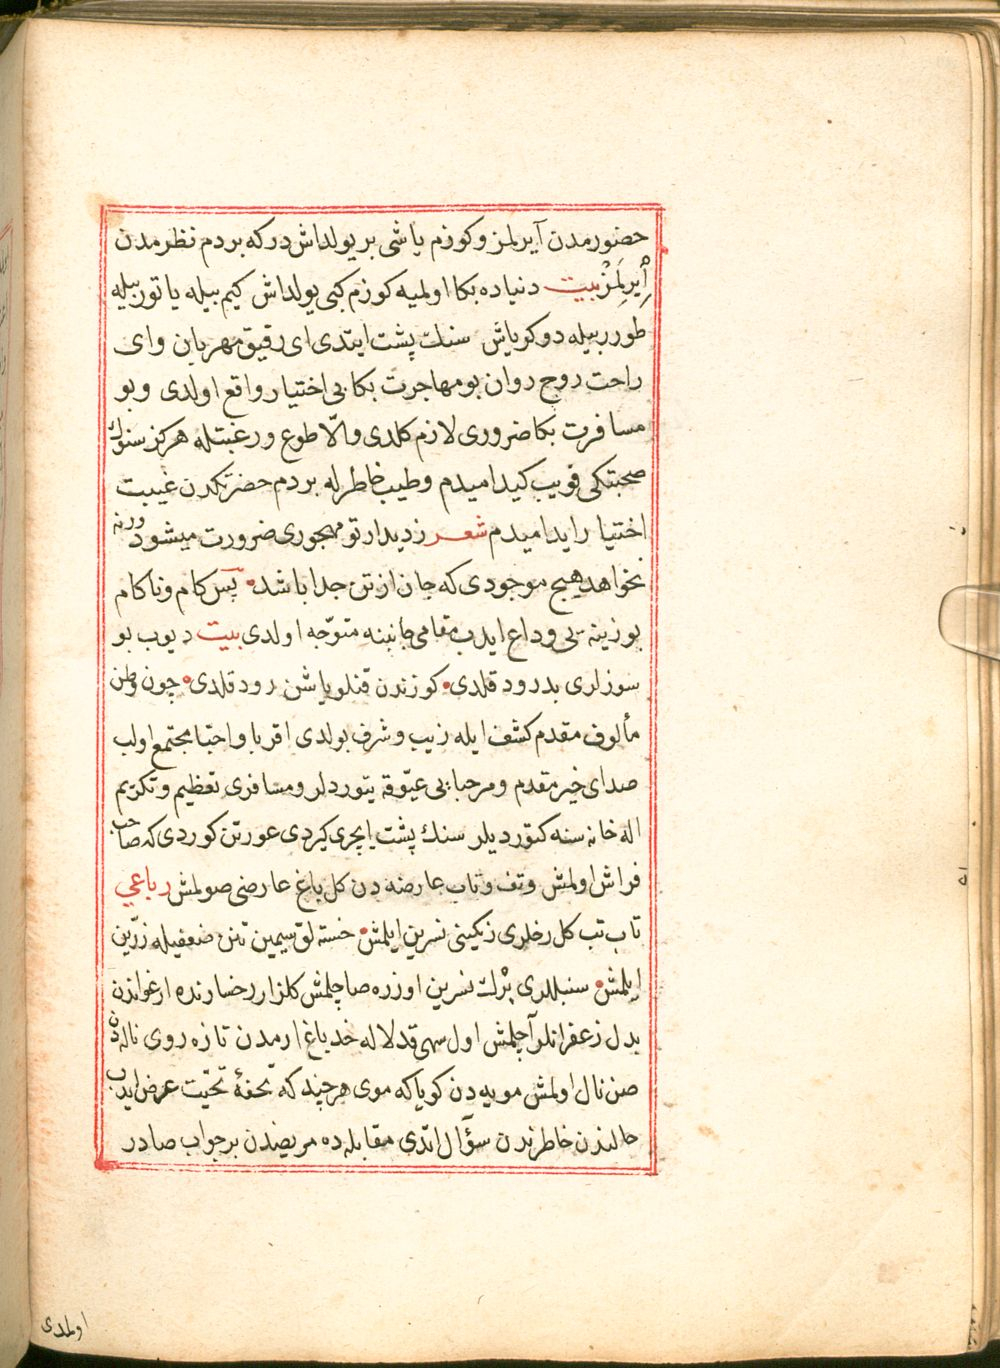 حضورمدن آيرلمز وكوزم ياشى بر يولداش دركه بردم نظرمدن
اْيرِلَمَزْ بيت دنياده بكا اولميه كوزم كبى يولداش كيم بيله ياتور بيله
طورر بيله دوكر ياش سنك پشت ايتدى اى رفيق مهربان واى
راحت روح روان بو مهاجرت بكا بى اختيار واقع اولدى وبو
مسافرت بكا ضرورى لازم كلدى والّا طوع ورغبتله هركز سنوك
صحبتكى قويب كيدا ميدم وطيب خاطرله بردم حضرتكدن غيبت
اختيار ايدا ميدم شعر ز ديدار تو مهجورى ضرورت ميشود ورنه
نخواهد هيچ موجودى كه جان از تن جدا باشد پس كام وناكام
بوزينه يى وداع ايدب مقامى جانبنه متوجّه اولدى بيت ديوب بو
سوزلرى بدرود قلدى كوزندن قنلو ياشن رود قلدى چون وطن
مألوف مقدم كشف ايله زيب وشرف بولدى اقربا واحبّا مجتمع اولب
صداى خير مقدم ومرحبا يى عيّوقه يتوردلر ومسافرى تعظيم وتكريم
اله خانه سنه كتورديلر سنك پشت ايچرى كيردى عورتن كوردى كه صاحب
فراش اولمش وتف وتاب عارضه دن كل باغ عارضى صولمش رباعى
تاب تب كل رخلرى زكينى نسرين ايلمش خسته لق سيمين تنن ضعفيله زرّين
ايلمش سنبللرى بْرك نسرين اوزره صاچلمش كلزار رخسارنده ارغواندن
بدل زعفرانلر آچلمش اول سهى قد لاله خد باغ ارمدن تازه روى ناله دن
صن نال اولمش مويه دن كويا كه موى هرچند كه تحفهٔ تحيّت عرض ايدب
حالندن خاطرندن سؤال اتدى مقابله ده مريضدن بر جواب صادر
اولمدى